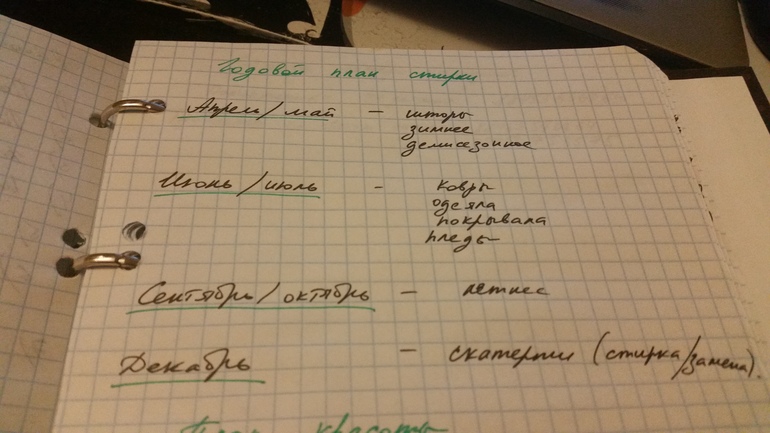 Годовой план стирки
Апрель/май — шторы
зимнее
демисезонное
Июнь/июль - ковры
одеяла
покрывала
пледы
Сентябрь/октябрь — летнее
Декабрь — скатерти (стирка/замена).
План красоты